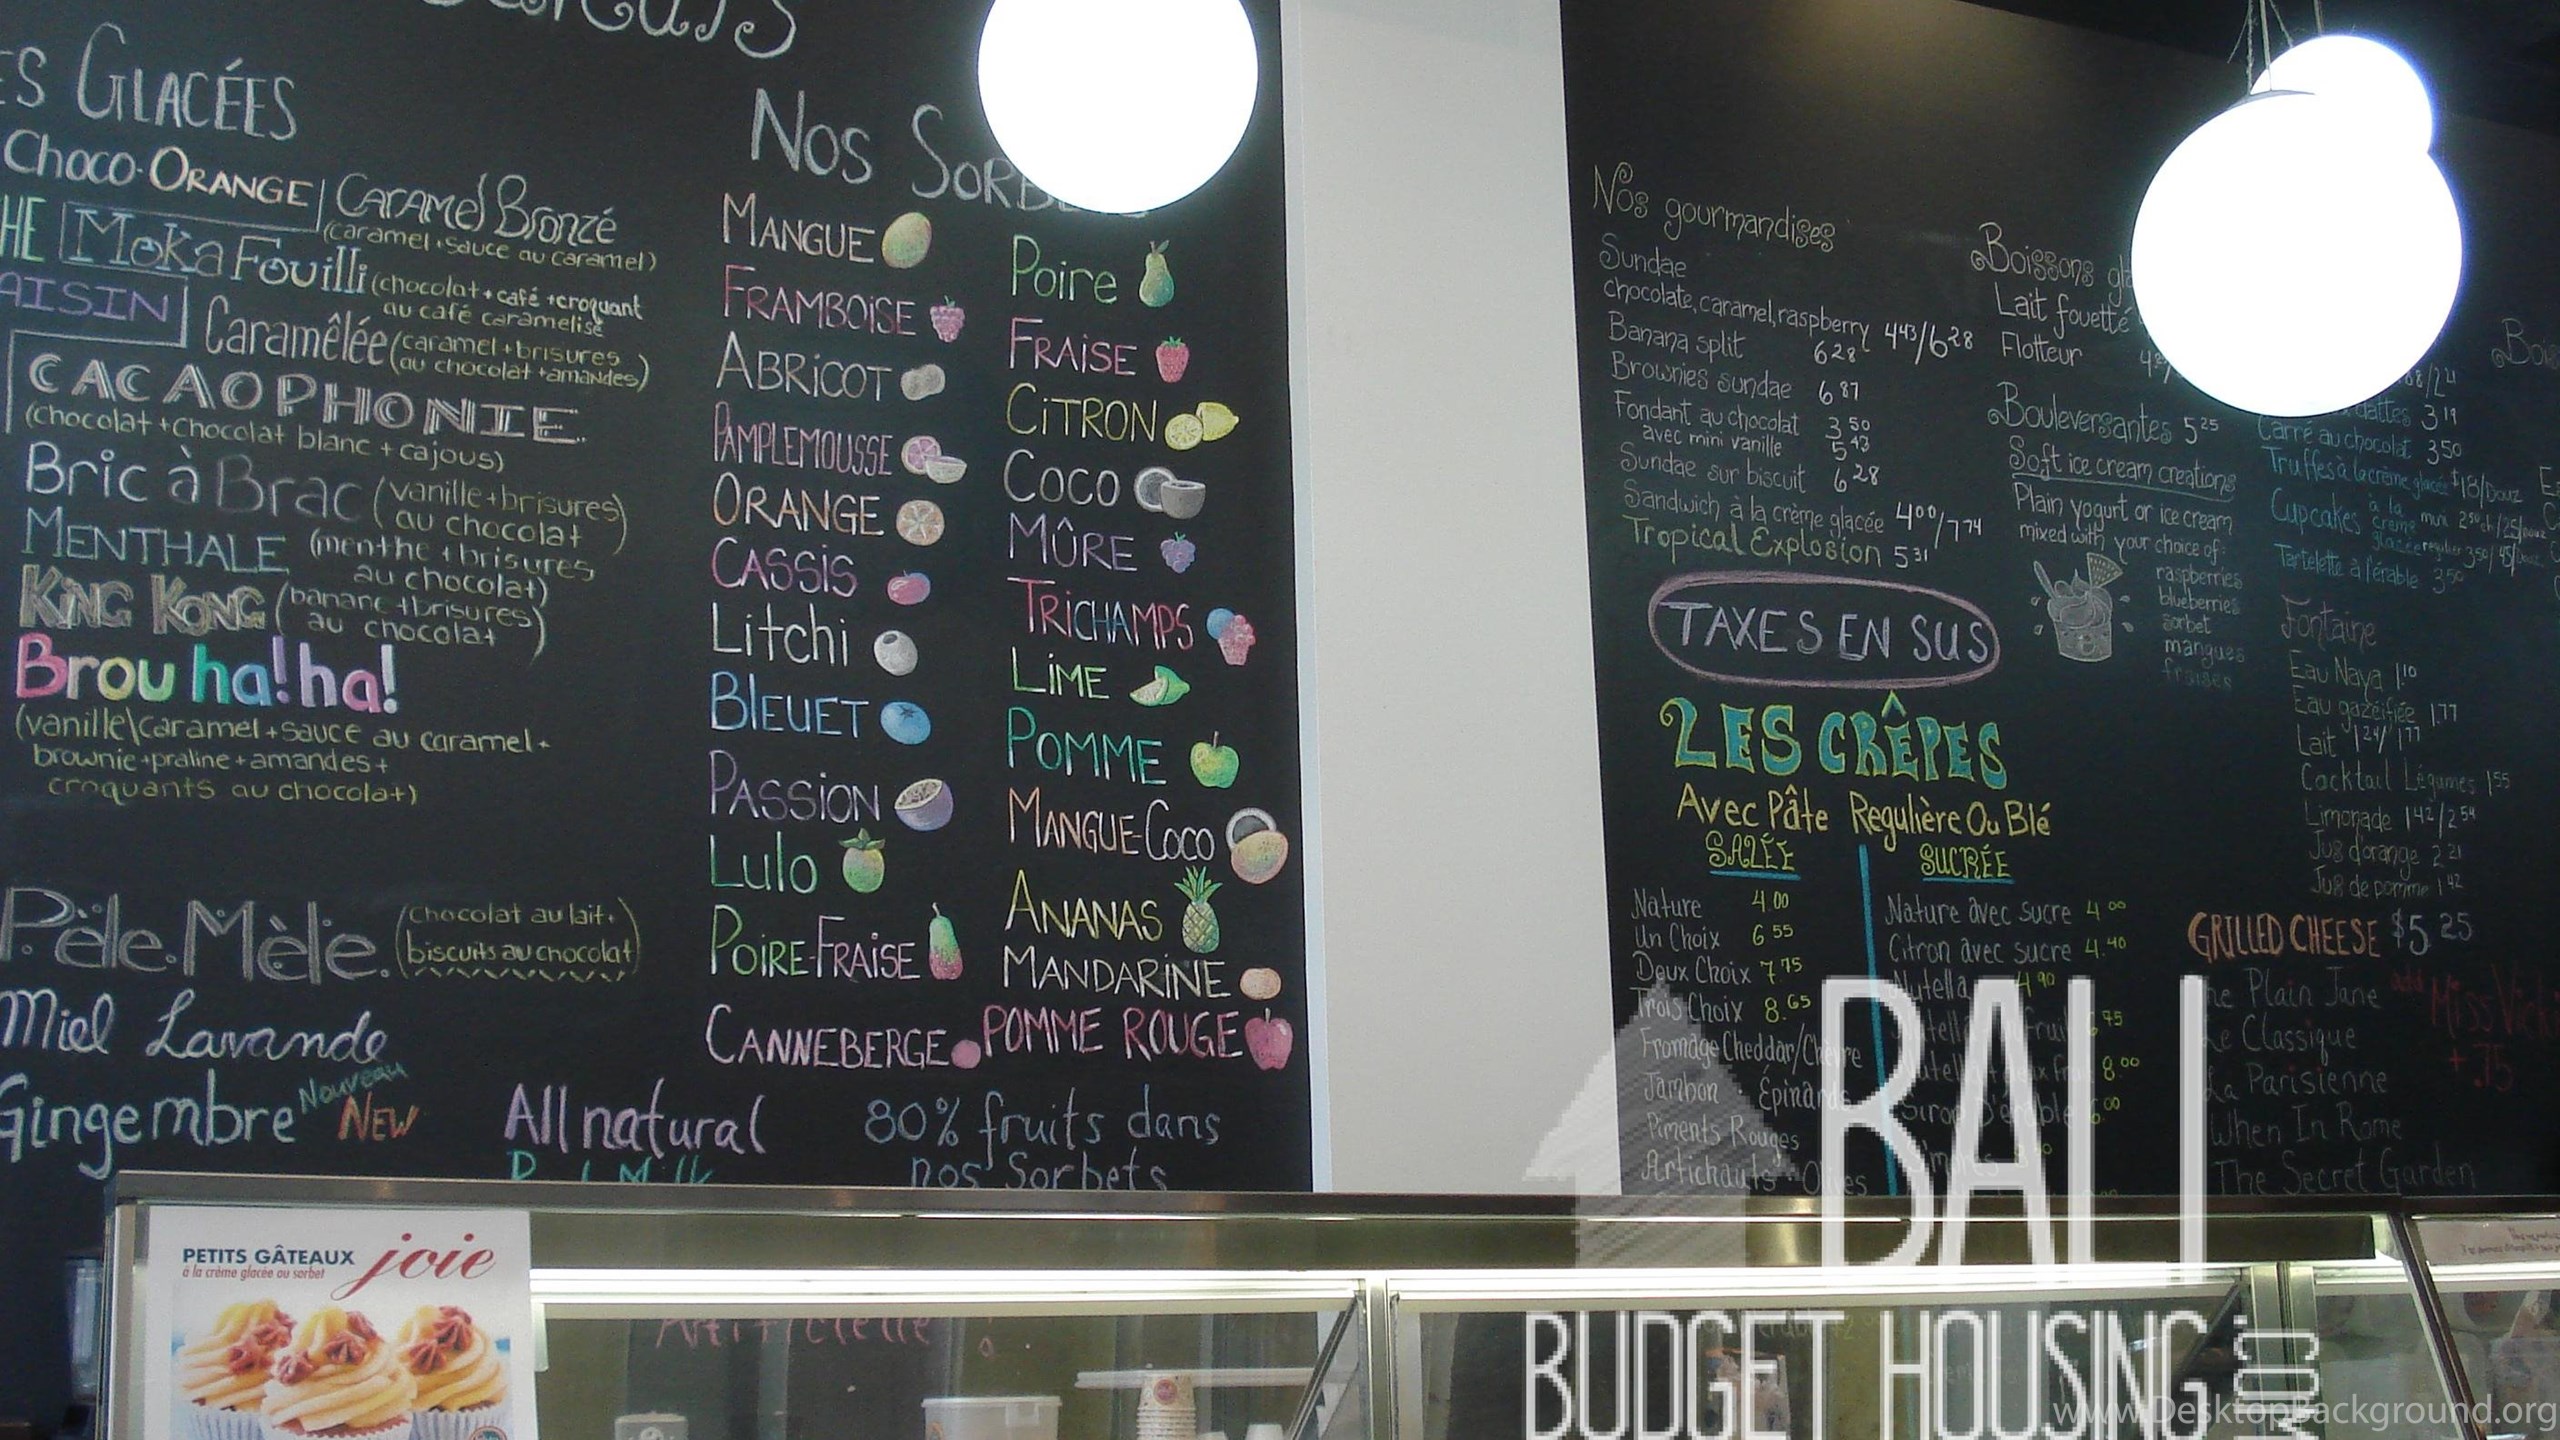 GLACÉES
Choco-ORANGE | CARAMEL BRONZÉ
(caramel + sauce au caramel)
Moka Fouilli (chocolat + café + croquant
au café caramelisé
Caramêlée (caramel + brisures
au chocolat + amandes)
CACAOPHONIE
(chocolat + chocolat blanc + cajous)
Bric à Brac (vanille + brisures
au chocolat)
MENTHALE (menthe + brisures
au chocolat)
KING KONG (banane + brisures
au chocolat)
Brou ha! ha!
(vanille\caramel + sauce au caramel +
brownie + praline + amandes +
croquants au chocolat)
Pêle.Mêle. (chocolat au lait +
biscuits au chocolat)
Miel Lavande
Gingembre Nouveau NEW
All natural
NOS
MANGUE
FRAMBOISE
ABRICOT
PAMPLEMOUSSE
ORANGE
CASSIS
Litchi
BLEUET
PASSION
Lulo
POIRE-FRAISE
CANNEBERGE
Poire
FRAISE
CITRON
COCO
MÛRE
TRICHAMPS
LIME
POMME
MANGUE-COCO
ANANAS
MANDARINE
POMME ROUGE
80% fruits dans
nos Sorbets
Nos gourmandises
Sundae
chocolate, caramel, raspberry 4 43/6 28
Banana split 6 28
Brownies sundae 6 87
Fondant au chocolat 3 50
avec mini vanille 5 43
Sundae sur biscuit 6 28
Sandwich à la crème glacée 4 00/7 74
Tropical Explosion 5 31
TAXES EN SUS
LES CRÊPES
Avec Pâte Regulière Ou Blé
SALÉE
Nature 4.00
Un Choix 6 55
Deux Choix 7 75
Trois Choix 8.65
Fromage Cheddar/Chèvre
Jambon Épinards
Piments Rouges
Artichauts
SUCRÉE
Nature avec sucre 4 00
Citron avec sucre 4.40
Nutella 4 90
Boissons
Lait fouetté
Flotteur
Bouleversantes 5 25
Soft ice cream creations
Plain yogurt or ice cream
mixed with your choice of:
raspberries
blueberries
sorbet
mangues
fraises
dattes 3 19
Carré au chocolat 3 50
Truffes à la crème glacée $18/Douz
Cupcakes à la crème glacée
Tartelette à l'érable 3 50
Fontaine
Eau Naya 1 10
Eau gazéifiée 1.77
Lait 1 24/1 77
Cocktail Légumes 1 55
Limonade 1 42/2 54
Jus d'orange 2 21
Jus de pomme 1 42
GRILLED CHEESE $5 25
The Plain Jane
Le Classique
La Parisienne
When In Rome
The Secret Garden
add Miss
+ .75
PETITS GÂTEAUX joie
à la crème glacée ou sorbet
Artificielle
BALI
BUDGET HOUSING
.COM
www.DesktopBackground.org